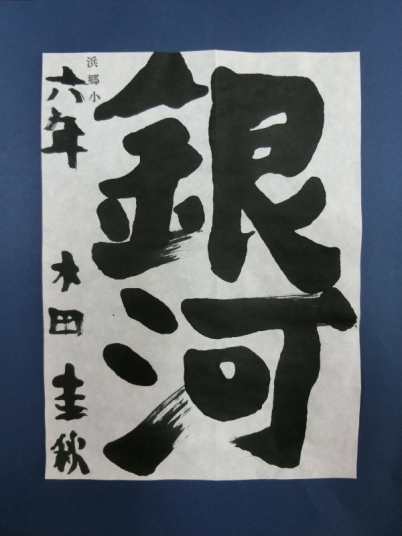 銀河
浜郷小
六年 木田圭秋